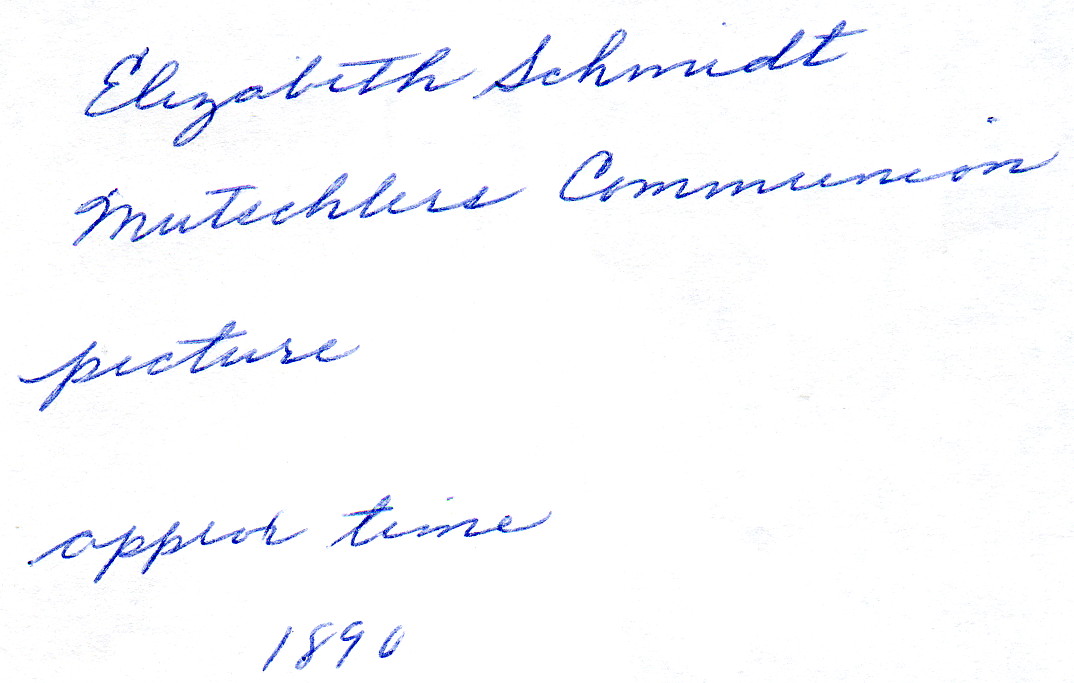 Elizabeth Schmidt
Mutschlers Communion
picture
approx time
1890